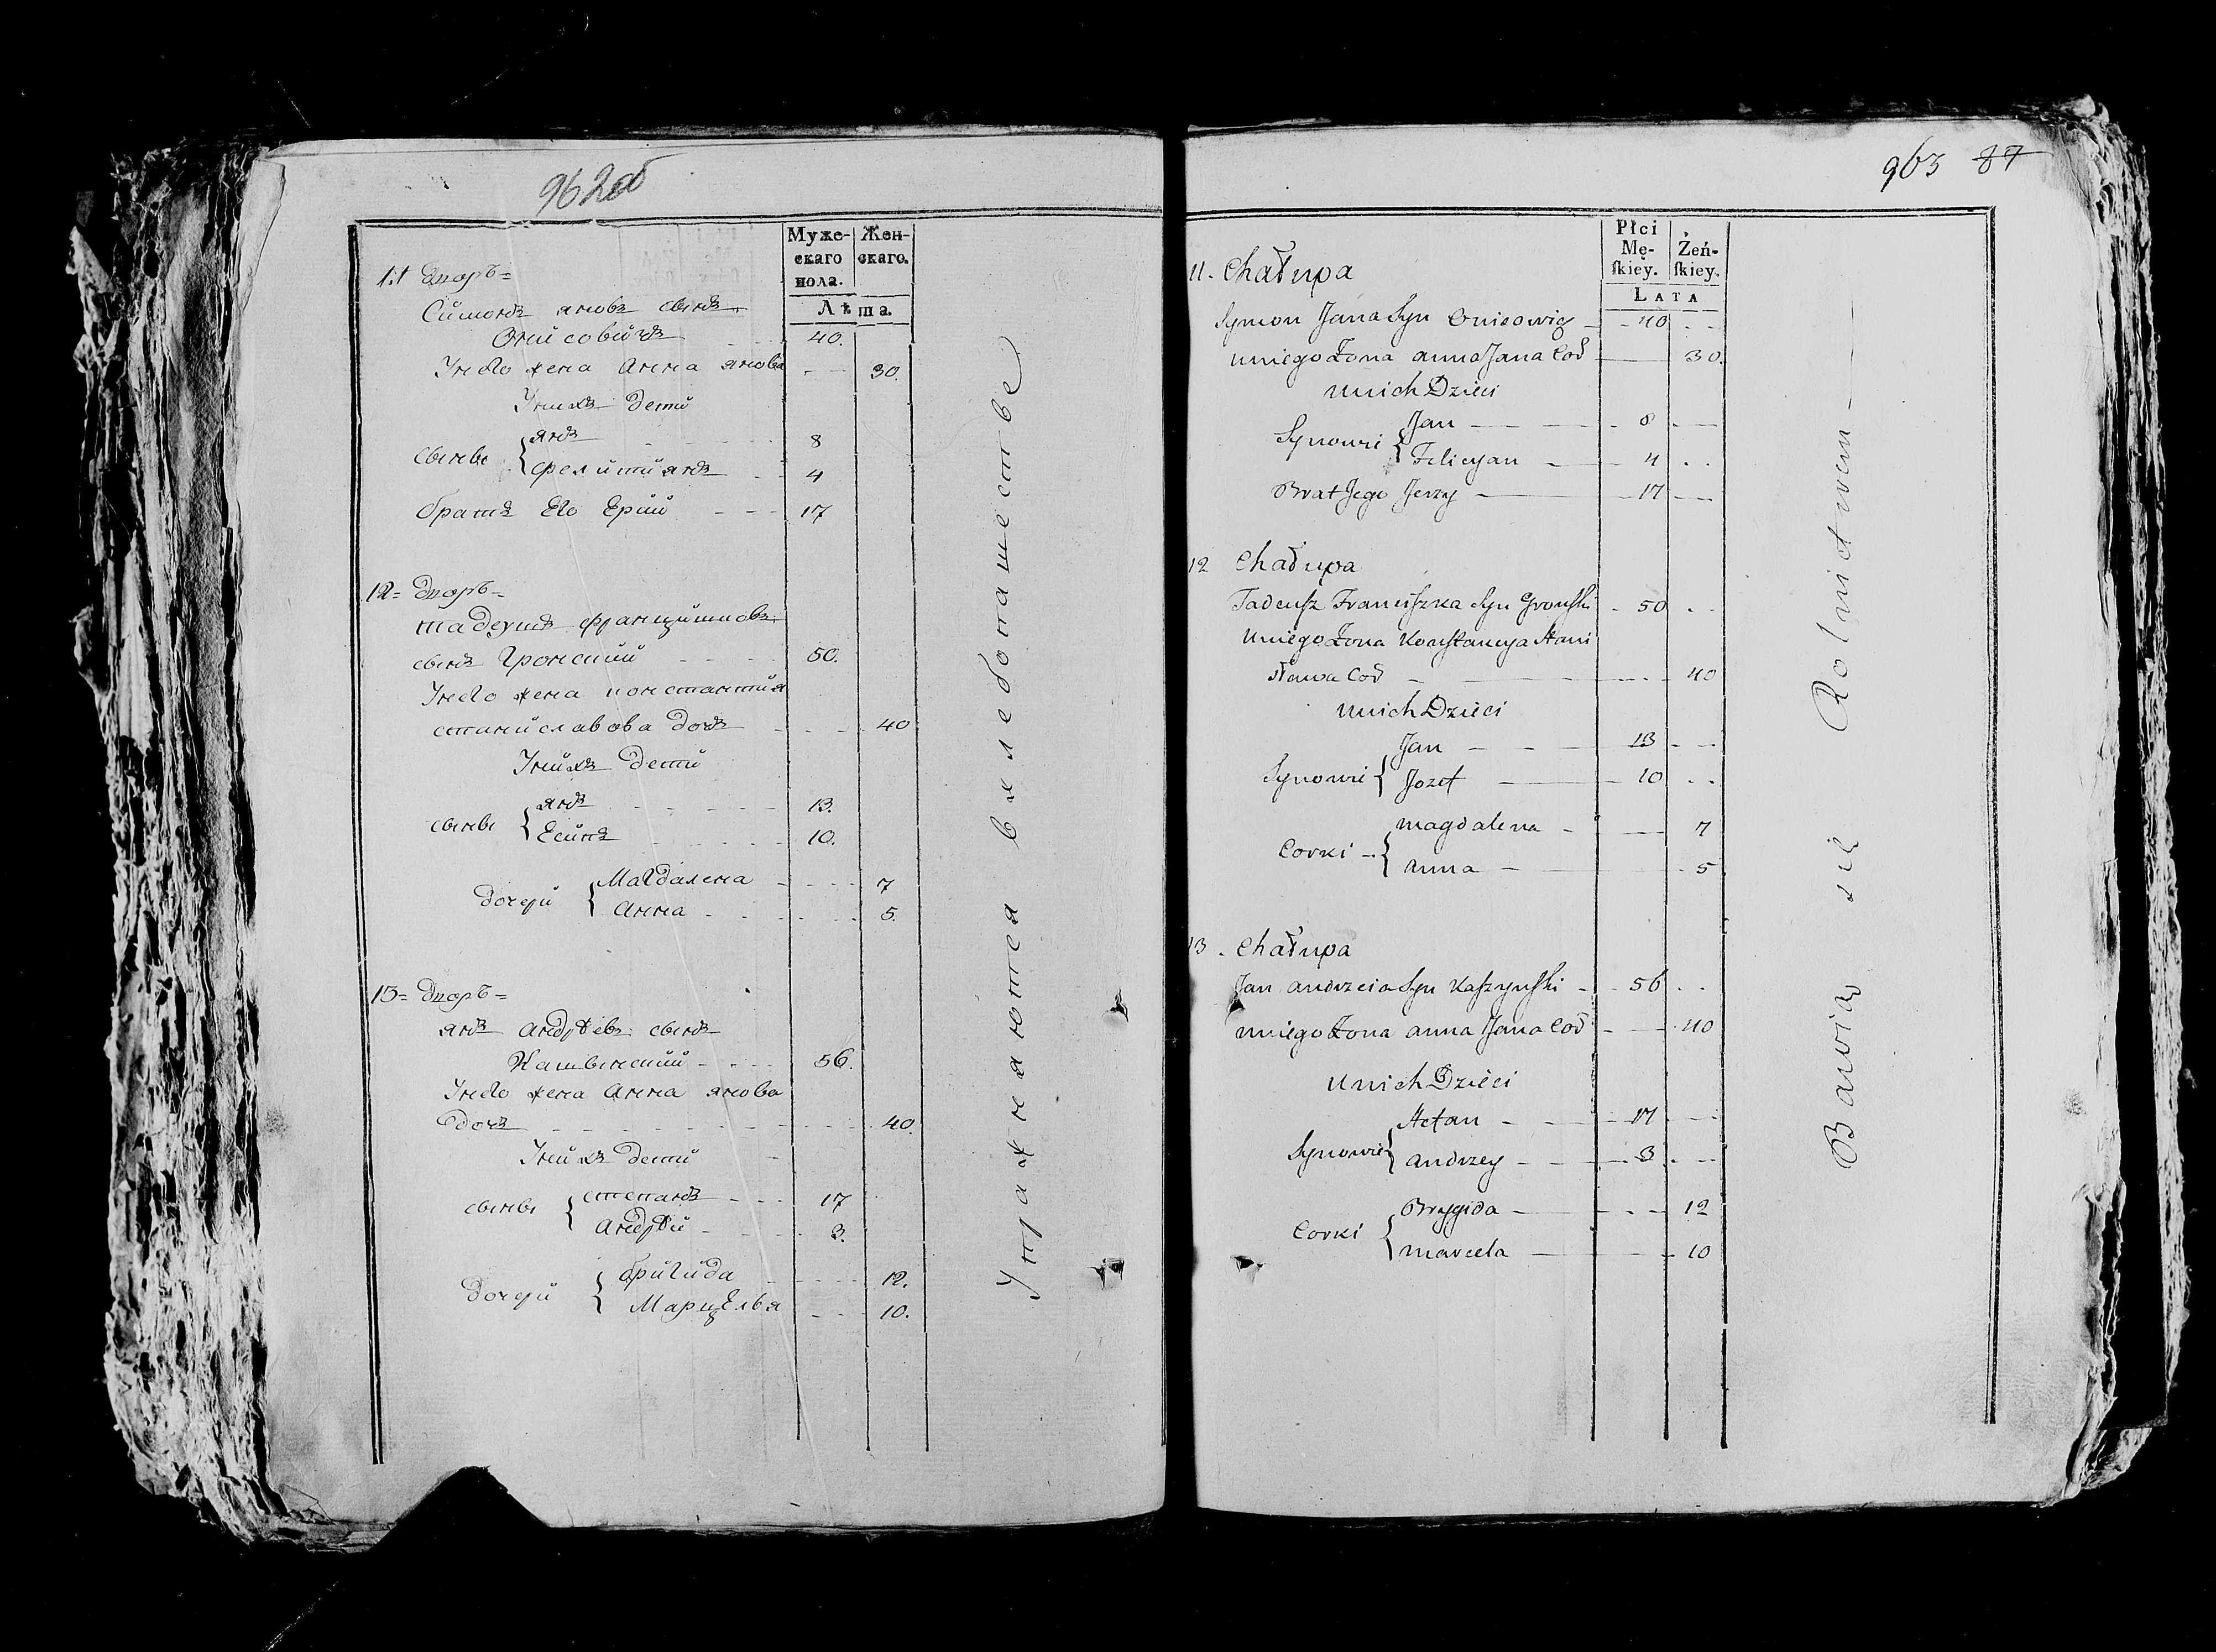 962об
Муже-
скаго
пола.
Жен-
скаго.
Лѣта.
11 Дворъ =
Симонъ яновъ сынъ
Онисовичъ - - 40.
Унего жена Анна янова - - 30.
Унихъ дети
сыны { янъ - - - 8
фелитиянъ - - 4
братъ Его Ерий - - - 17
12 = Дворъ =
тадеушъ францишковъ
сынъ Гронский - - - 50.
Унего жена константия
станиславова дочь - - - 40
Унихъ дети
сыны { янъ - - - 13.
Есипъ - - - 10.
дочери { Магдалена - - - 7
Анна - - - 5.
13 = Дворъ =
янъ Андрѣевъ сынъ
Кашынский - - - 56.
Унего жена Анна янова
дочь - - - 40.
Унихъ дети
сыны { степанъ - - - 17
Андрѣй - - - 3.
дочери { бригида - - - 12.
Марцелья - - - 10.
Упражняются вхлебопашестве
963 87
Płci
Mę-
skiey.
Żeń-
skiey.
LATA
11. Chałupa
Symon Jana Syn Onisowicz - 40 - -
uniego Żona anna Jana Cod - 30.
unich Dzieci
Synowie { Jan - - - 8 - -
Felicyan - - 4 - -
Brat Jego Jerzy - - 17 - -
12 Chałupa
Tadeusz Franciszka Syn Gronski - 50 - -
uniego Żona Konstancya Stani
sława Cod - - - 40
unich Dzieci
Synowie { Jan - - - 13 - -
Jozef - - 10 - -
Corki - { magdalena - - 7
anna - - 5
13. Chałupa
Jan andrzeia Syn Kaszynski - - 56 - -
uniego Żona anna Jana Cod - - 40
unich Dzieci
Synowie { Stefan - - 17 - -
andrzey - - - 3 - -
Corki { Brygida - - - 12
marcela - - 10
Bawią się Rolnictwem